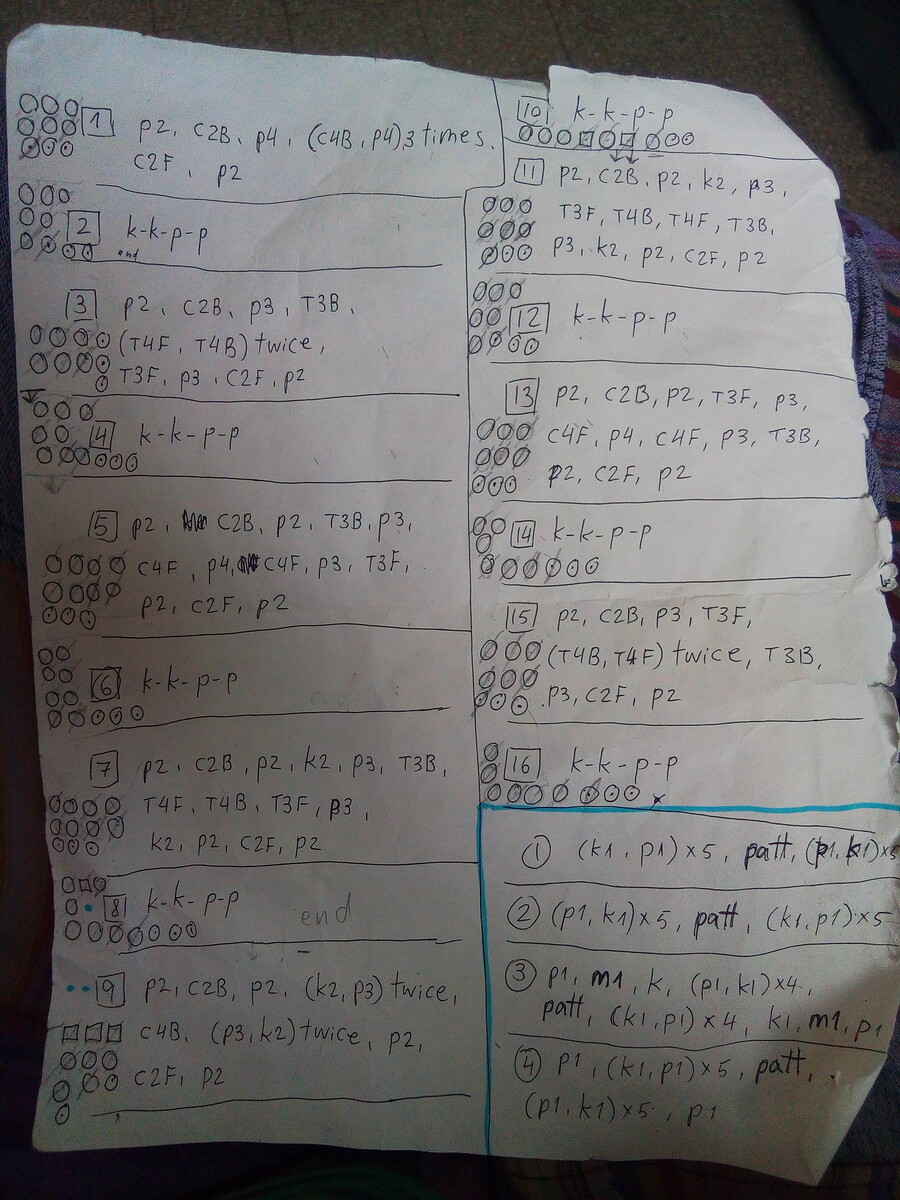 1 p2, C2B, p4, (C4B, p4) 3 times,
C2F, p2
2 k-k-p-p
end
3 p2, C2B, p3, T3B,
(T4F, T4B) twice,
T3F, p3, C2F, p2
4 k-k-p-p
5 p2, C2B, p2, T3B, p3,
C4F, p4, C4F, p3, T3F,
p2, C2F, p2
6 k-k-p-p
7 p2, C2B, p2, k2, p3, T3B,
T4F, T4B, T3F, p3,
k2, p2, C2F, p2
8 k-k-p-p
end
9 p2, C2B, p2, (k2, p3) twice,
C4B, (p3, k2) twice, p2,
C2F, p2
10 k-k-p-p
11 p2, C2B, p2, k2, p3,
T3F, T4B, T4F, T3B,
p3, k2, p2, C2F, p2
12 k-k-p-p
13 p2, C2B, p2, T3F, p3,
C4F, p4, C4F, p3, T3B,
p2, C2F, p2
14 k-k-p-p
15 p2, C2B, p3, T3F,
(T4B, T4F) twice, T3B,
p3, C2F, p2
16 k-k-p-p
x
1 (k1, p1) x 5, patt, (p1, k1) x 5
2 (p1, k1) x 5, patt, (k1, p1) x 5
3 p1, m1, k, (p1, k1) x 4,
patt, (k1, p1) x 4, k1, m1, p1
4 p1, (k1, p1) x 5, patt,
(p1, k1) x 5, p1